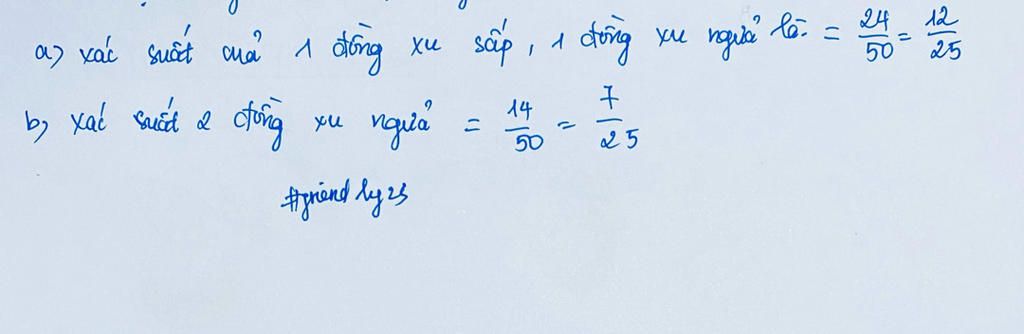 a) xác suất của 1 đồng xu sấp, 1 đồng xu ngửa là: = 24/50 = 12/25
b) xác suất 2 đồng xu ngửa = 14/50 = 7/25
#friendly23